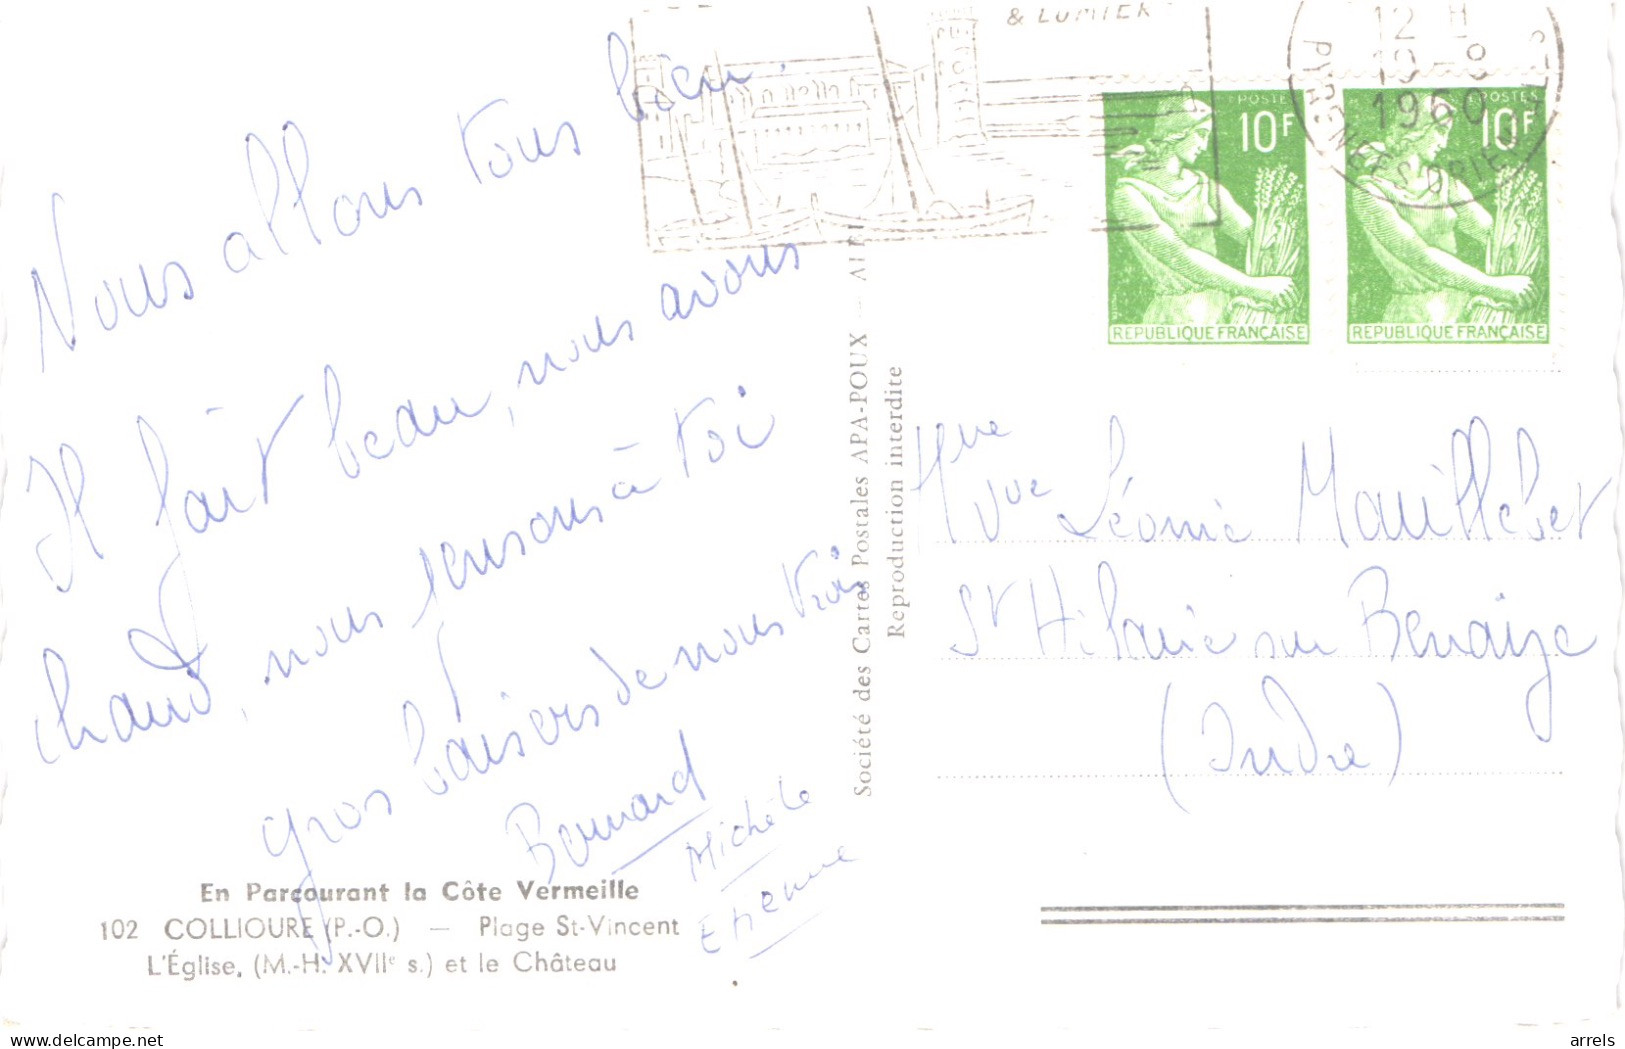 Nous allons tous bien.
Il fait beau, nous avons
chaud, nous pensons à toi
gros baisers de nous trois
Bernard
Michèle
Etienne
En Parcourant la Côte Vermeille
102 COLLIOURE (P.-O.) — Plage St-Vincent
L'Église, (M.-H. XVIIe s.) et le Château
Société des Cartes Postales APA-POUX — ALBI
Reproduction interdite
& LUMIER
12 H
1960
PYRENEES ORIEN
POSTES
10F
REPUBLIQUE FRANÇAISE
POSTES
10F
REPUBLIQUE FRANÇAISE
Mme
Vve Léonie Mauillebet
St Hilaire sur Benaize
(Indre)
delcampe.net
arrels